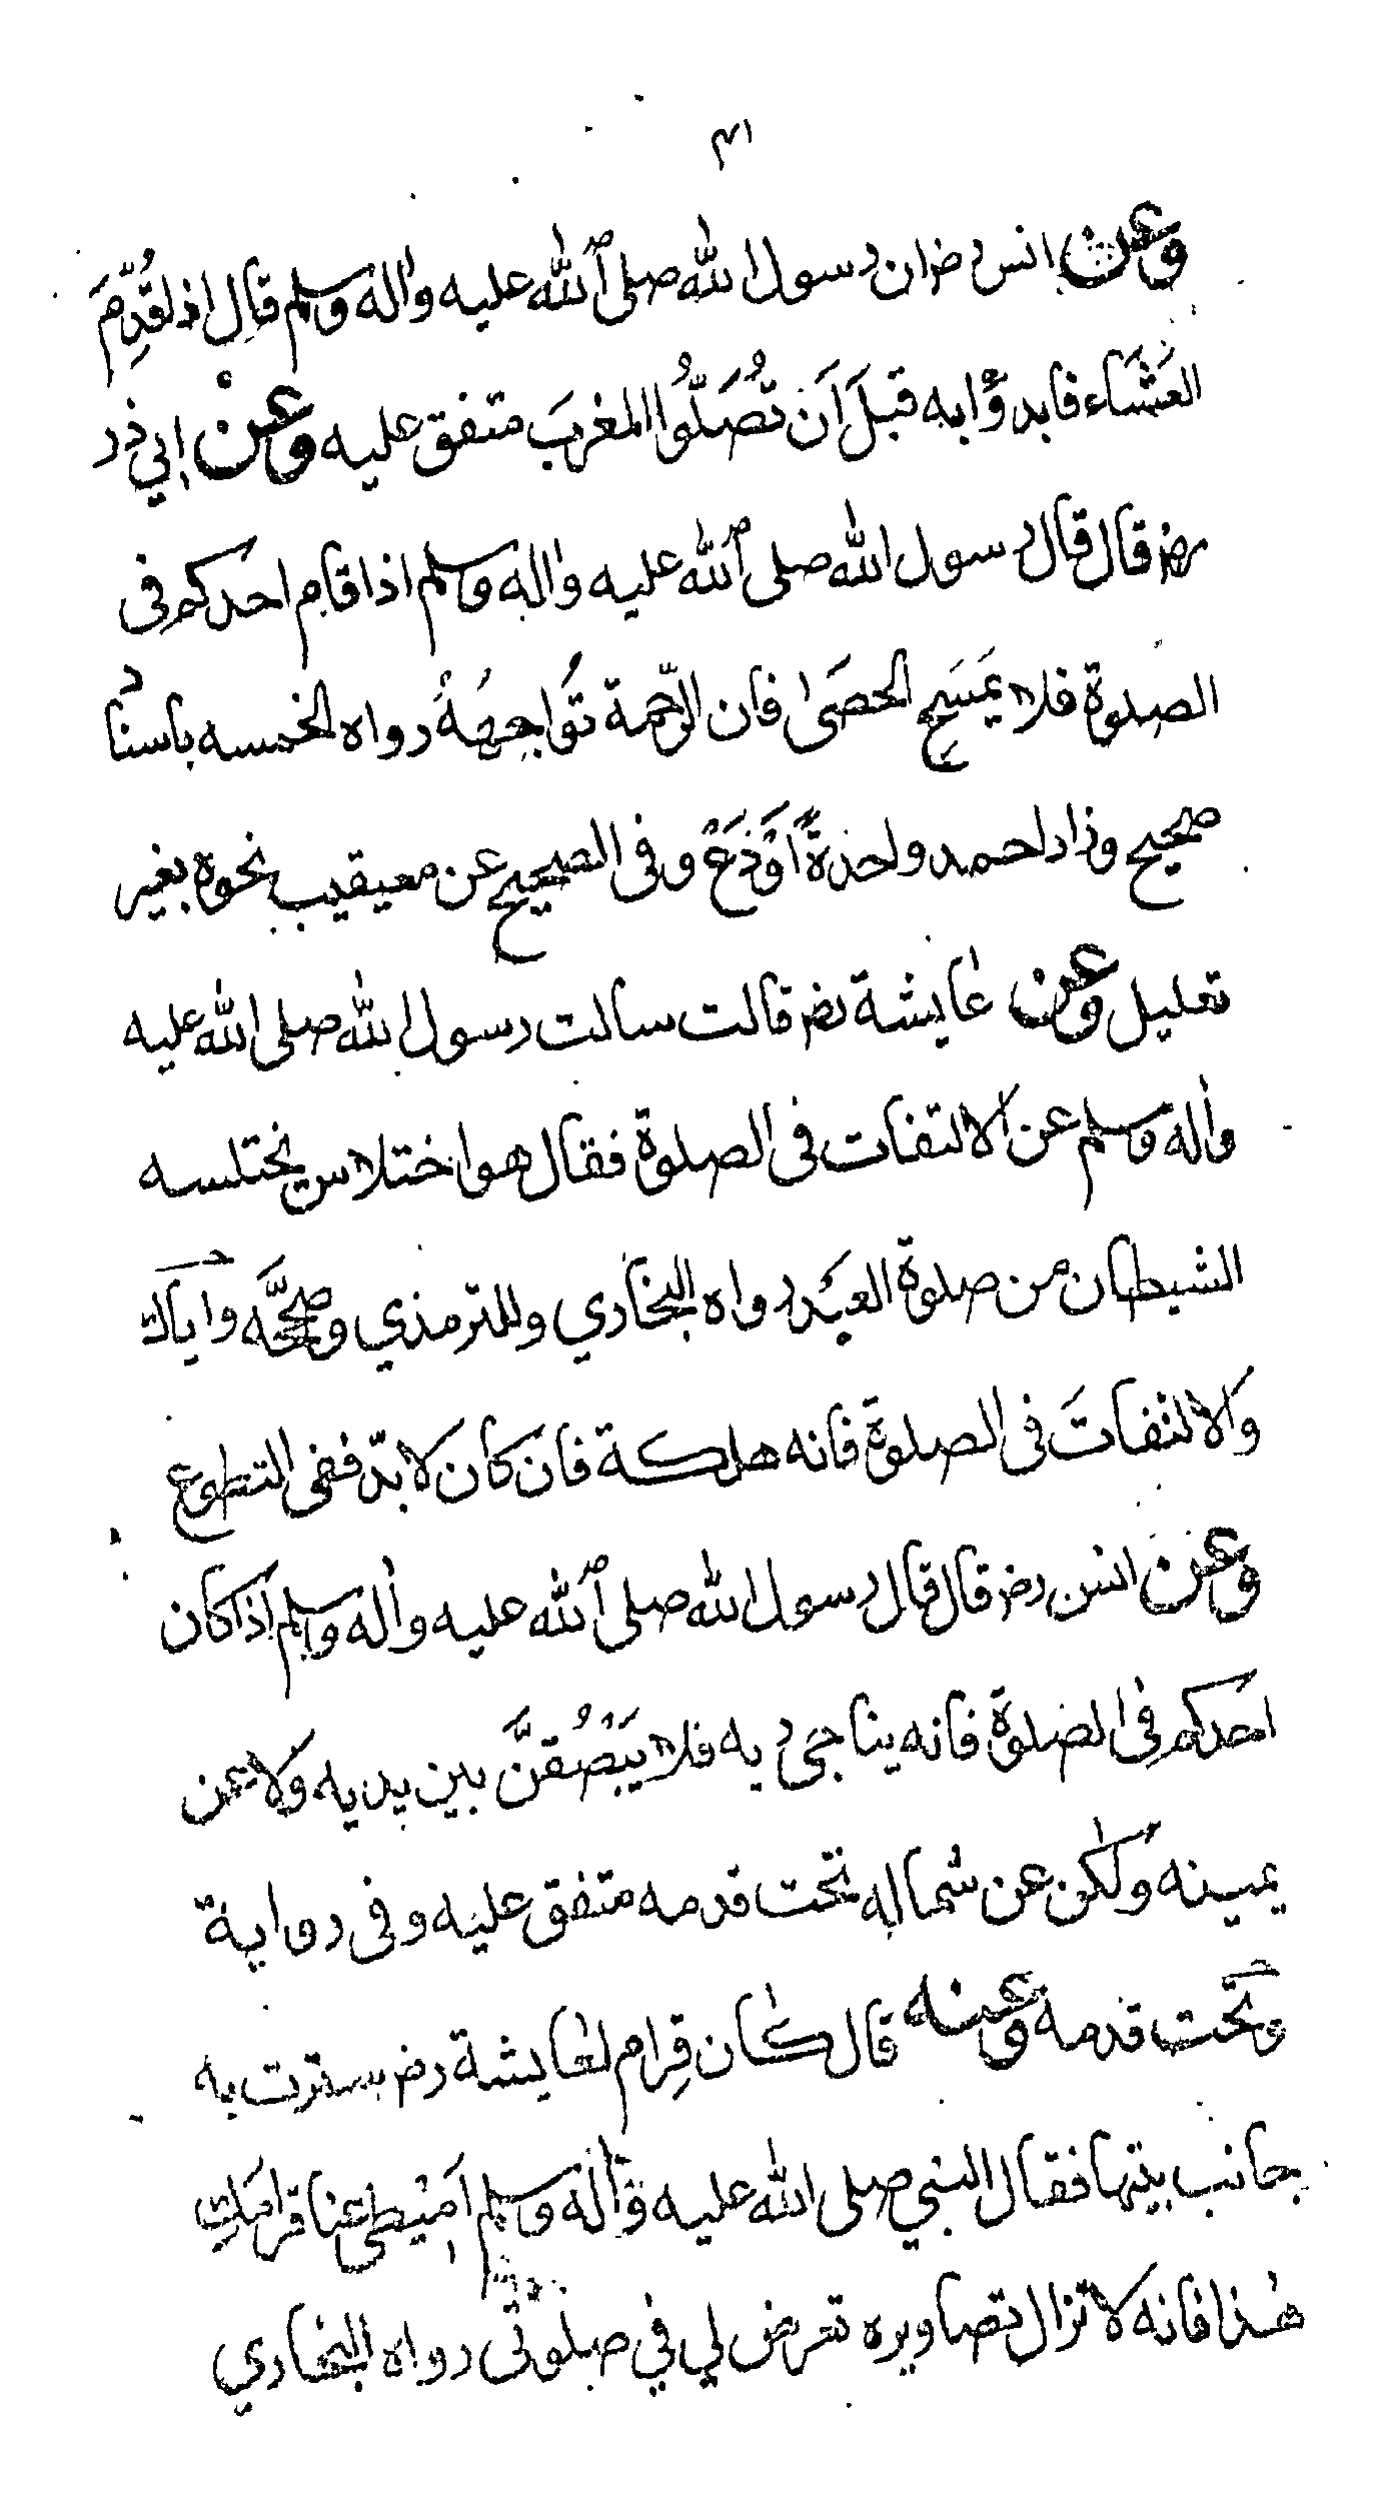 ٣١
وعن انس رض ان رسول الله صلى الله عليه واله وسلم قال اذا قُدِّمَ
العَشَاء فابدؤابه قبلَ اَن تُصَلُّوا المغربَ متفق عليه وعنْ ابي ذر
رض قال قال رسول الله صلى الله عليه واله وسلم اذا قام احدكم في
الصلوة فلا يَمسَحِ الحصَىٰ فان الرّحمة تُواجِهُهُ رواه الخمسه باسناد
صحيح وزاد احمد واحدةً اَوْدَعْ وفي الصحيح عن معيقيب نحوه بغير
تعليل وعن عايشة رض قالت سالت رسول الله صلى الله عليه
واله وسلم عن الالتفات في الصلوة فقال هو اختلاس يختلسه
الشيطان من صلوة العبد رواه البخاري وللترمذي وصحَّحه واياك
والالتفاتَ في الصلوة فانه هلكة فان كان لا بدّ ففي التطوع
وعن انس رض قال قال رسول الله صلى الله عليه واله وسلم اذا كان
احدكم في الصلوة فانه يناجي ربه فلا يَبْصُقَنَّ بين يديه ولا عن
يمينه ولكن عن شماله تحت قدمه متفق عليه وفي رواية
وتحت قدمه وعنه قال كان قِرام لعايشة رض سترت به
جانب بيتها فقال النبي صلى الله عليه واله وسلم اَمِيْطي عنا قرامكِ
هٰذا فانه لا تزال تصاويره تعرض لي في صلوتي رواه البخاري